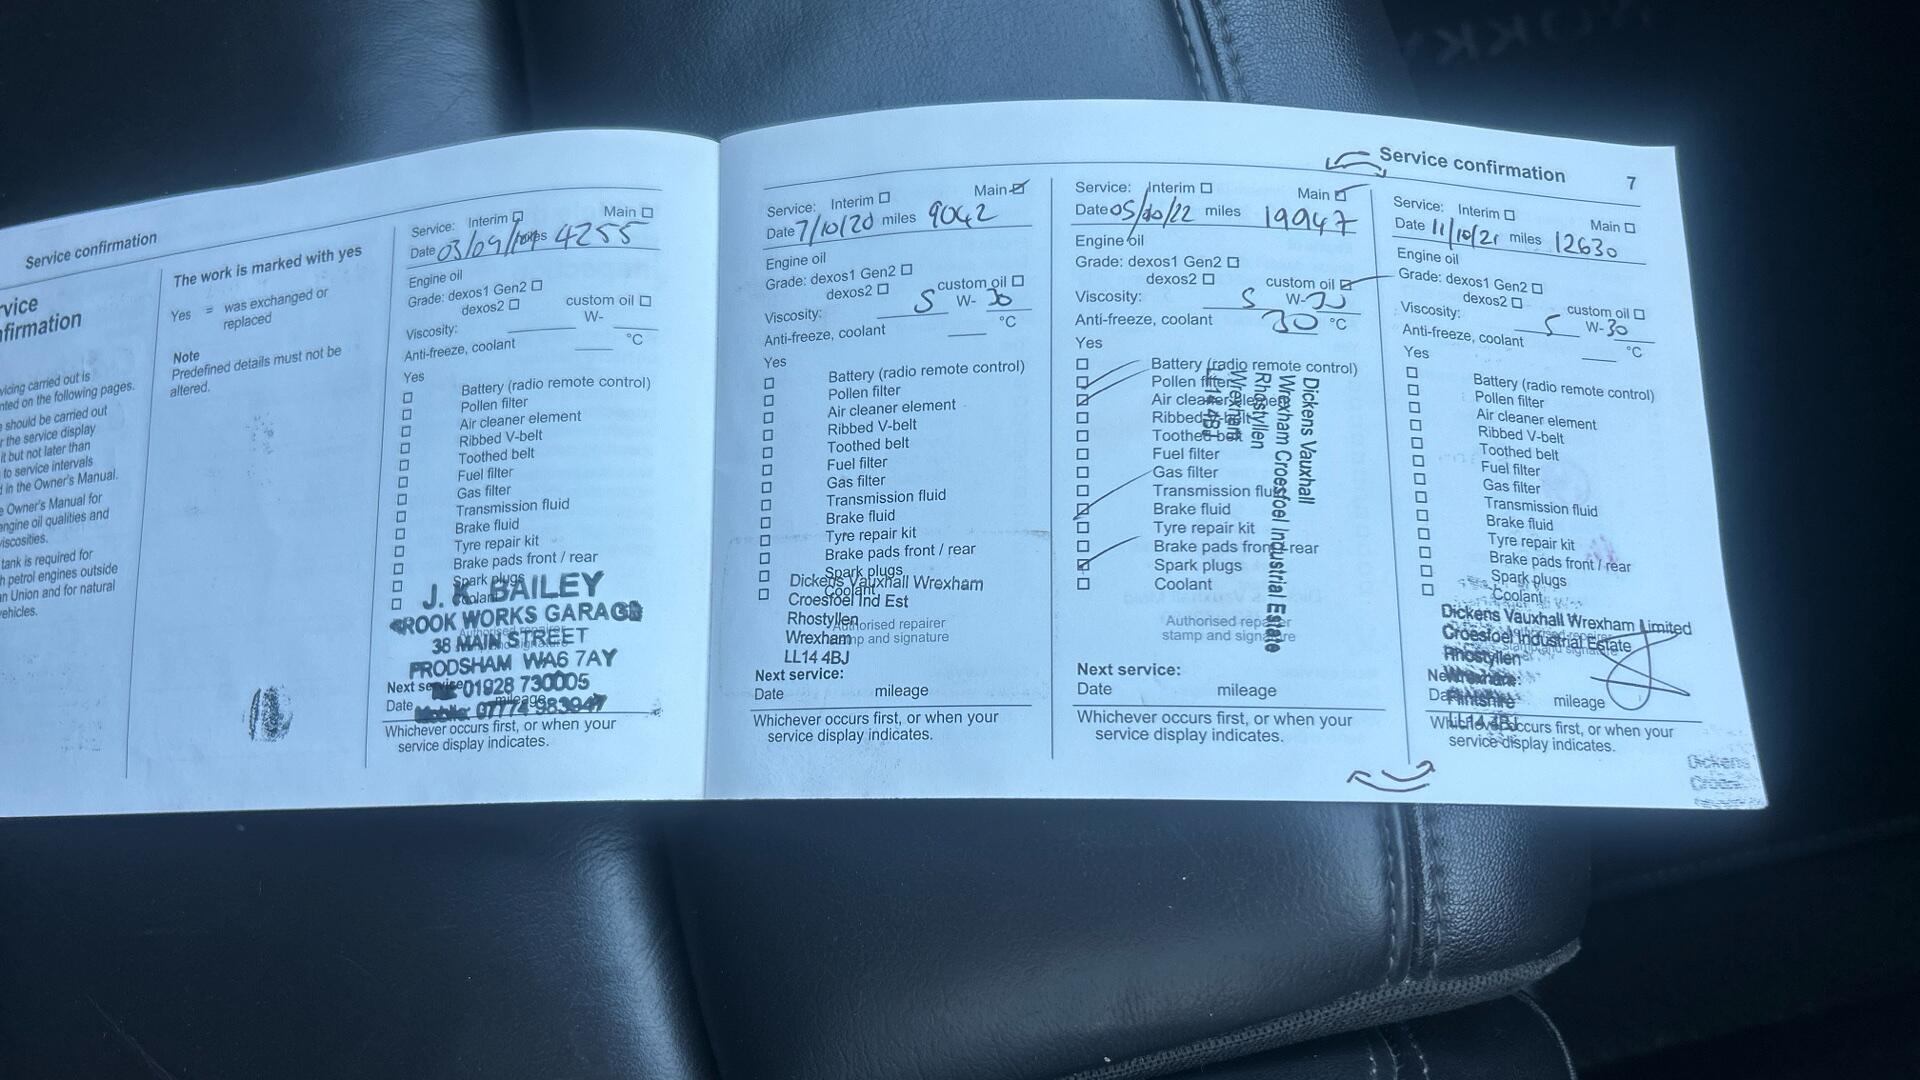 Service confirmation
rvice
nfirmation
vicing carried out is
nted on the following pages.
e should be carried out
r the service display
it but not later than
to service intervals
d in the Owner's Manual.
e Owner's Manual for
engine oil qualities and
viscosities.
tank is required for
h petrol engines outside
an Union and for natural
vehicles.
The work is marked with yes
Yes = was exchanged or
replaced
Note
Predefined details must not be
altered.
Service: Interim Main
Date 03/09/ miles 4255
Engine oil
Grade: dexos1 Gen2
dexos2 custom oil
Viscosity: W-
Anti-freeze, coolant °C
Yes
Battery (radio remote control)
Pollen filter
Air cleaner element
Ribbed V-belt
Toothed belt
Fuel filter
Gas filter
Transmission fluid
Brake fluid
Tyre repair kit
Brake pads front / rear
Spark plugs
Coolant
J. K. BAILEY
ROOK WORKS GARAGE
38 MAIN STREET
FRODSHAM WA6 7AY
01928 730005
Mobile: 07774 983947
Authorised repairer
stamp and signature
Next service:
Date mileage
Whichever occurs first, or when your
service display indicates.
Service: Interim Main
Date 7/10/20 miles 9042
Engine oil
Grade: dexos1 Gen2
dexos2 custom oil
Viscosity: 5 W- 30
Anti-freeze, coolant °C
Yes
Battery (radio remote control)
Pollen filter
Air cleaner element
Ribbed V-belt
Toothed belt
Fuel filter
Gas filter
Transmission fluid
Brake fluid
Tyre repair kit
Brake pads front / rear
Spark plugs
Coolant
Dickens Vauxhall Wrexham
Croesfoel Ind Est
Rhostyllen
Wrexham
LL14 4BJ
Authorised repairer
stamp and signature
Next service:
Date mileage
Whichever occurs first, or when your
service display indicates.
Service confirmation 7
Service: Interim Main
Date 05/10/22 miles 19947
Engine oil
Grade: dexos1 Gen2
dexos2 custom oil
Viscosity: 5 W-30
Anti-freeze, coolant 30 °C
Yes
Battery (radio remote control)
Pollen filter
Air cleaner element
Ribbed V-belt
Toothed belt
Fuel filter
Gas filter
Transmission fluid
Brake fluid
Tyre repair kit
Brake pads front / rear
Spark plugs
Coolant
Dickens Vauxhall
Wrexham Croesfoel Industrial Estate
Rhostyllen
Wrexham
LL14 4BJ
Authorised repairer
stamp and signature
Next service:
Date mileage
Whichever occurs first, or when your
service display indicates.
Service: Interim Main
Date 11/10/21 miles 12630
Engine oil
Grade: dexos1 Gen2
dexos2 custom oil
Viscosity: 5 W-30
Anti-freeze, coolant °C
Yes
Battery (radio remote control)
Pollen filter
Air cleaner element
Ribbed V-belt
Toothed belt
Fuel filter
Gas filter
Transmission fluid
Brake fluid
Tyre repair kit
Brake pads front / rear
Spark plugs
Coolant
Dickens Vauxhall Wrexham Limited
Croesfoel Industrial Estate
Rhostyllen
Wrexham
Flintshire
LL14 4BJ
mileage
Whichever occurs first, or when your
service display indicates.
Dickens